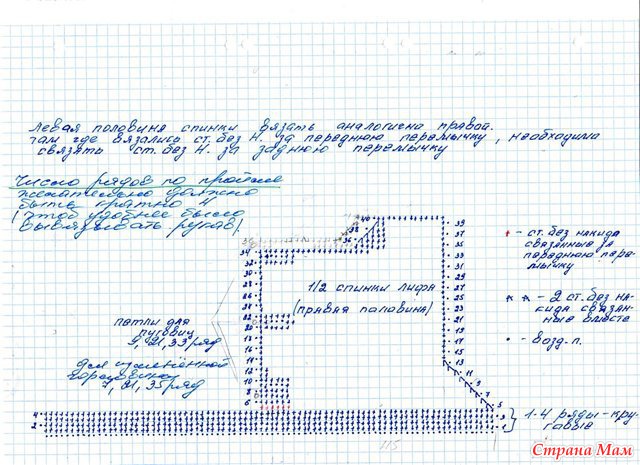 левая половина спинки вязать аналогична правой.
там где вязались ст. без н. за переднюю перемычку, необходимо
связать ст. без н. за заднюю перемычку
Число рядов по пройме
желательно должно
быть кратно 4
(чтоб удобнее было
вывязывать рукав).
1/2 спинки лифа
(правая половина)
петли для
пуговиц
9, 21, 33 ряд
для изменённой
горловины
7, 21, 35 ряд
- ст. без накида
связанные за
переднюю пере-
мычку
- 2 ст. без на-
кида связан-
ные вместе
• - возд. п.
1-4 ряды - кру-
говые
40
38
36
34
32
30
28
26
24
22
20
18
16
14
12
10
8
6
4
2
39
37
35
33
31
29
27
25
23
21
19
17
15
13
11
9
7
5
3
1
115
Страна Мам